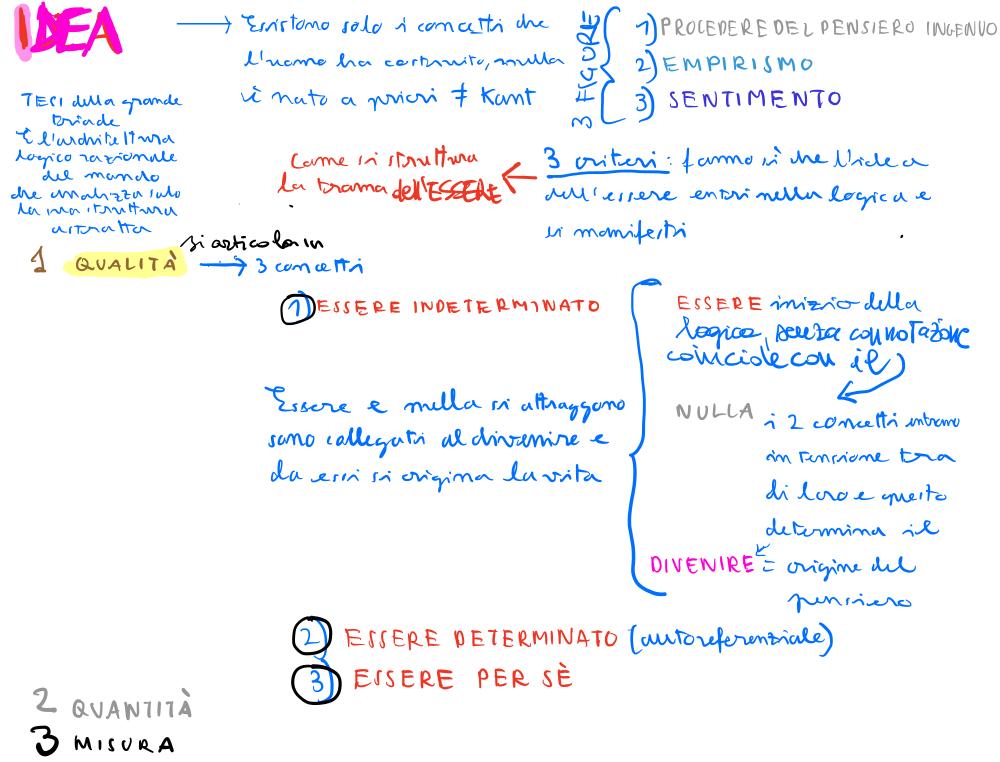 IDEA
TESI della grande
triade
È l'architettura
logico razionale
del mondo
che analizza solo
la sua struttura
astratta
Esistono solo i concetti che
l'uomo ha costruito, nulla
è nato a priori ≠ Kant
3 FIGURE
1) PROCEDERE DEL PENSIERO INGENUO
2) EMPIRISMO
3) SENTIMENTO
3 criteri: fanno sì che l'idea
dell'essere entri nella logica e
si manifesti
Come si struttura
la trama dell'ESSERE
1 QUALITÀ
si articola in
3 concetti
1) ESSERE INDETERMINATO
Essere e nulla si attraggono
sono collegati al divenire e
da essi si origina la vita
ESSERE inizio della
logica, senza connotazione
coincide con il
NULLA
i 2 concetti entrano
in tensione tra
di loro e questo
determina il
DIVENIRE = origine del
pensiero
2) ESSERE DETERMINATO (autoreferenziale)
3) ESSERE PER SÈ
2 QUANTITÀ
3 MISURA